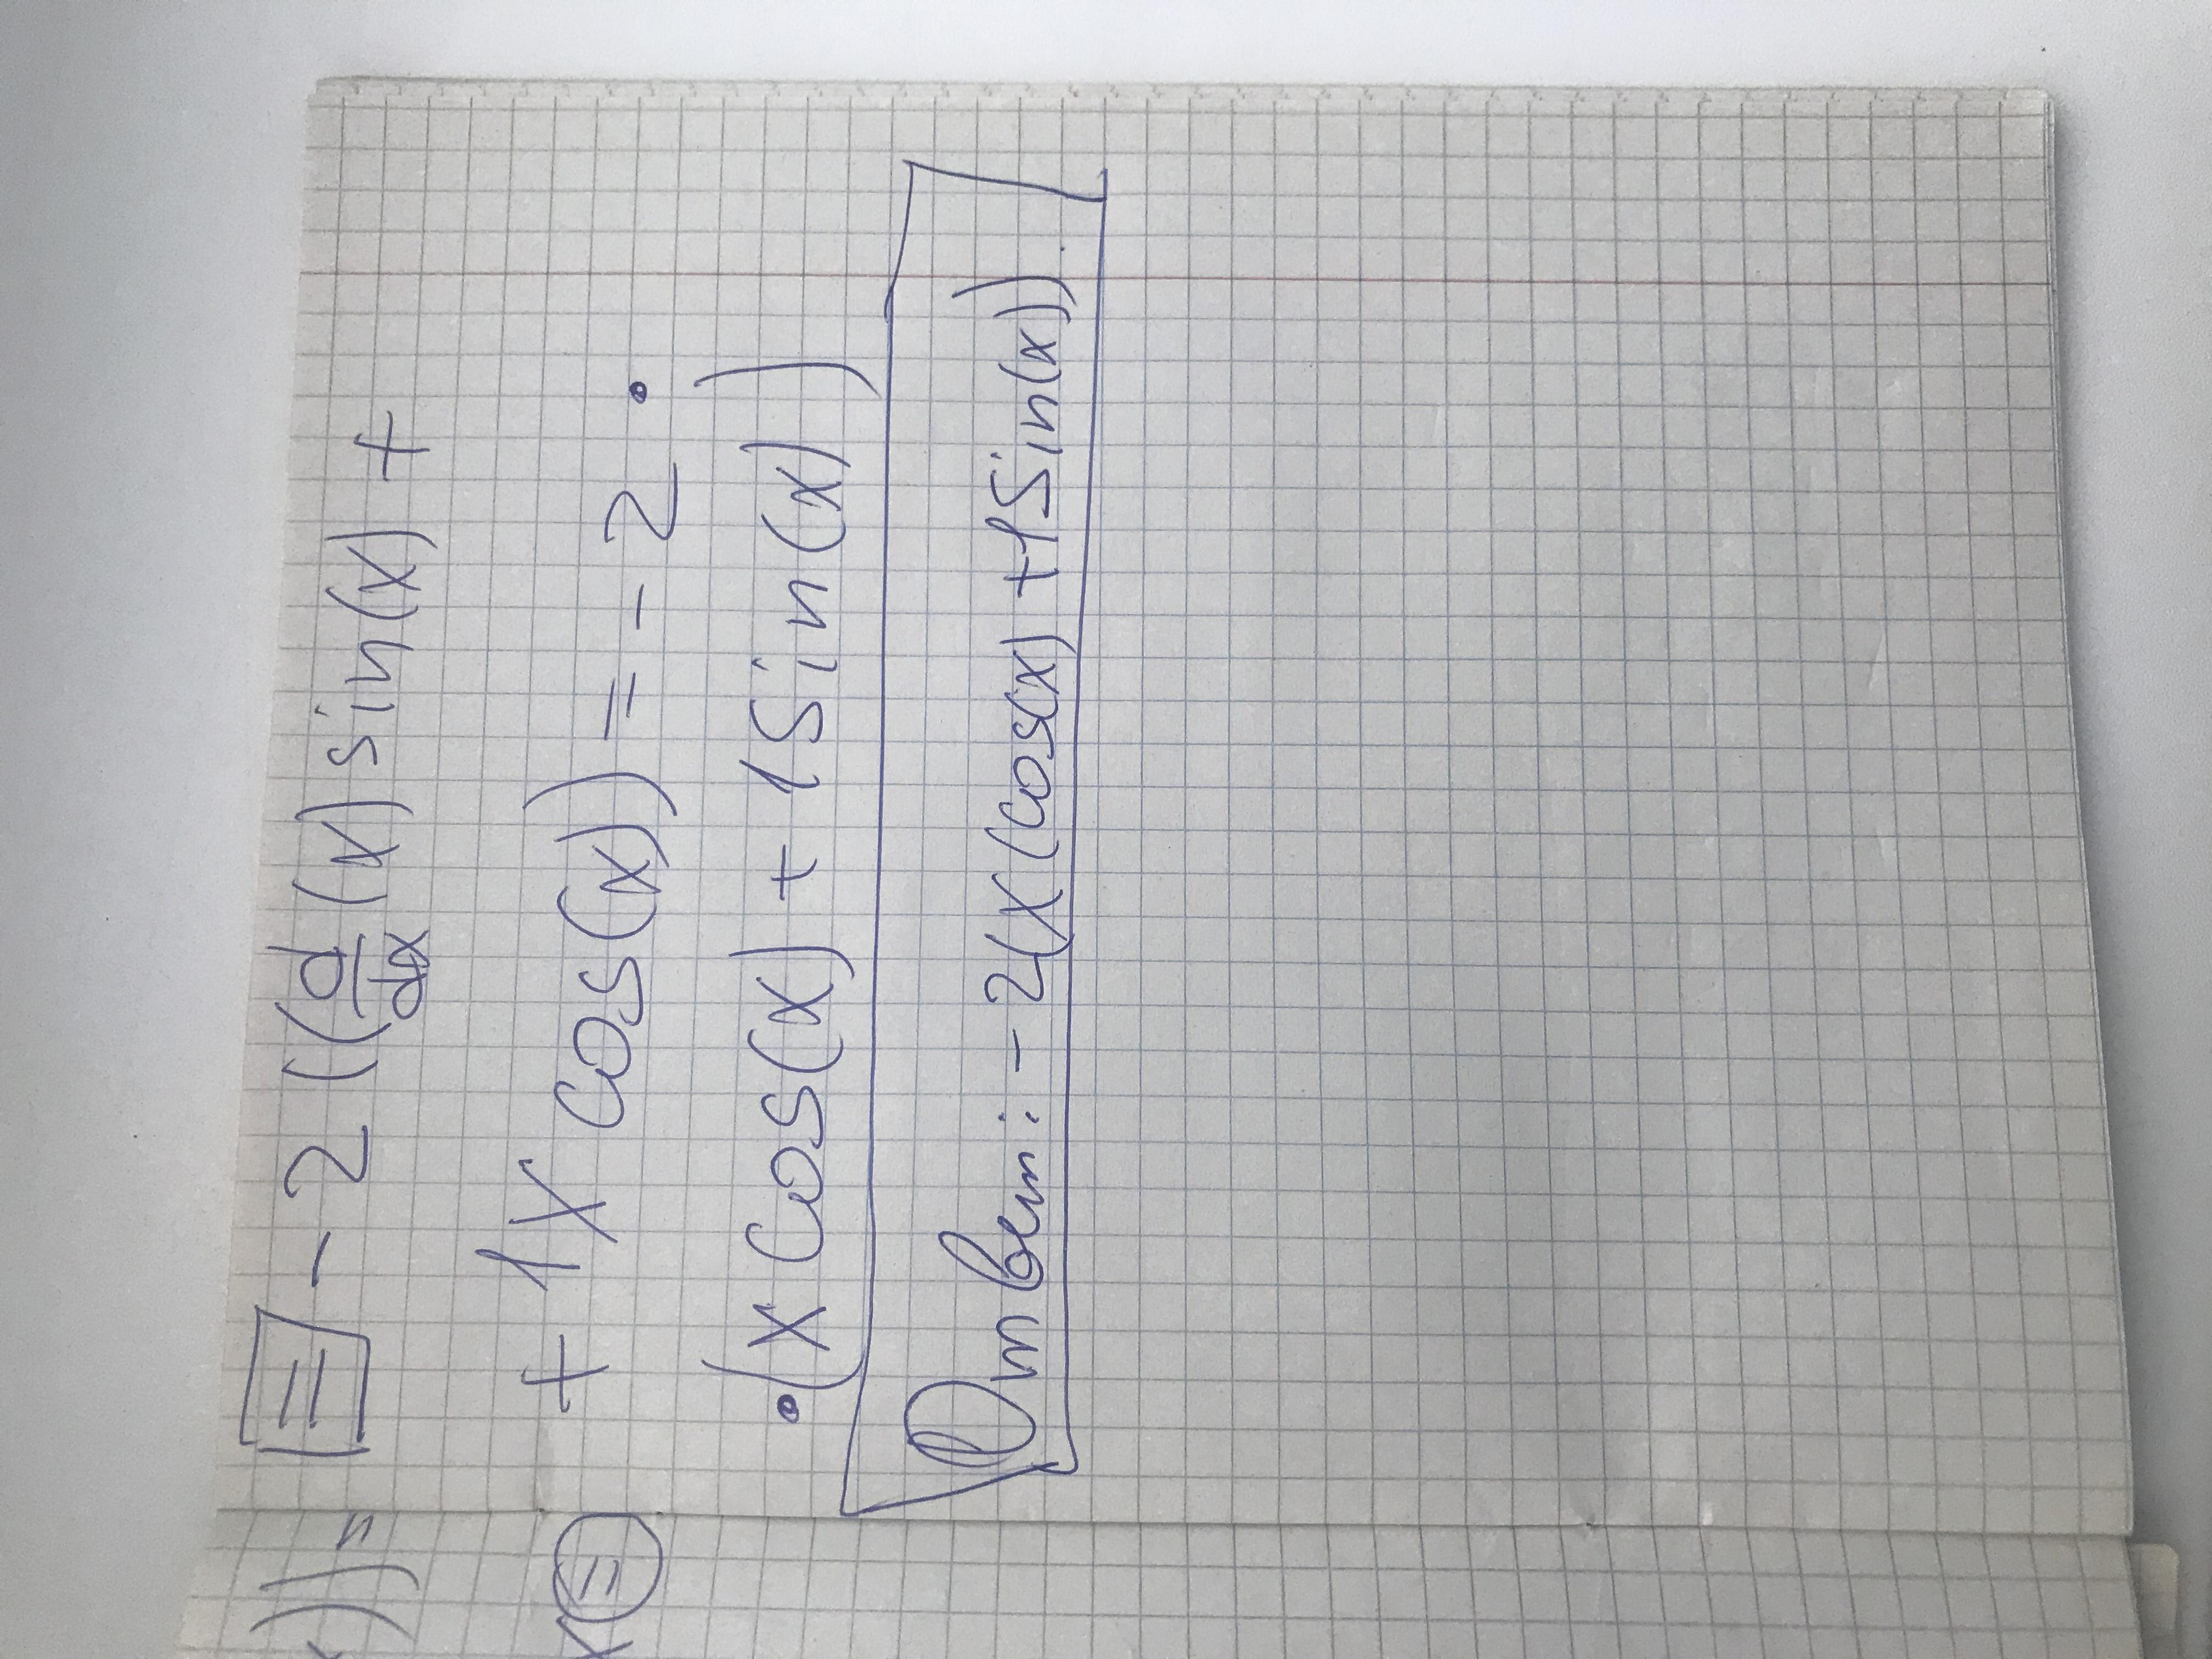 = - 2 ((d/dx (x) sin(x) +
+ 1x cos(x)) = - 2 ·
· (x cos(x) + 1 sin(x))
Ответ: - 2(x(cos(x) + 1 sin(x)).